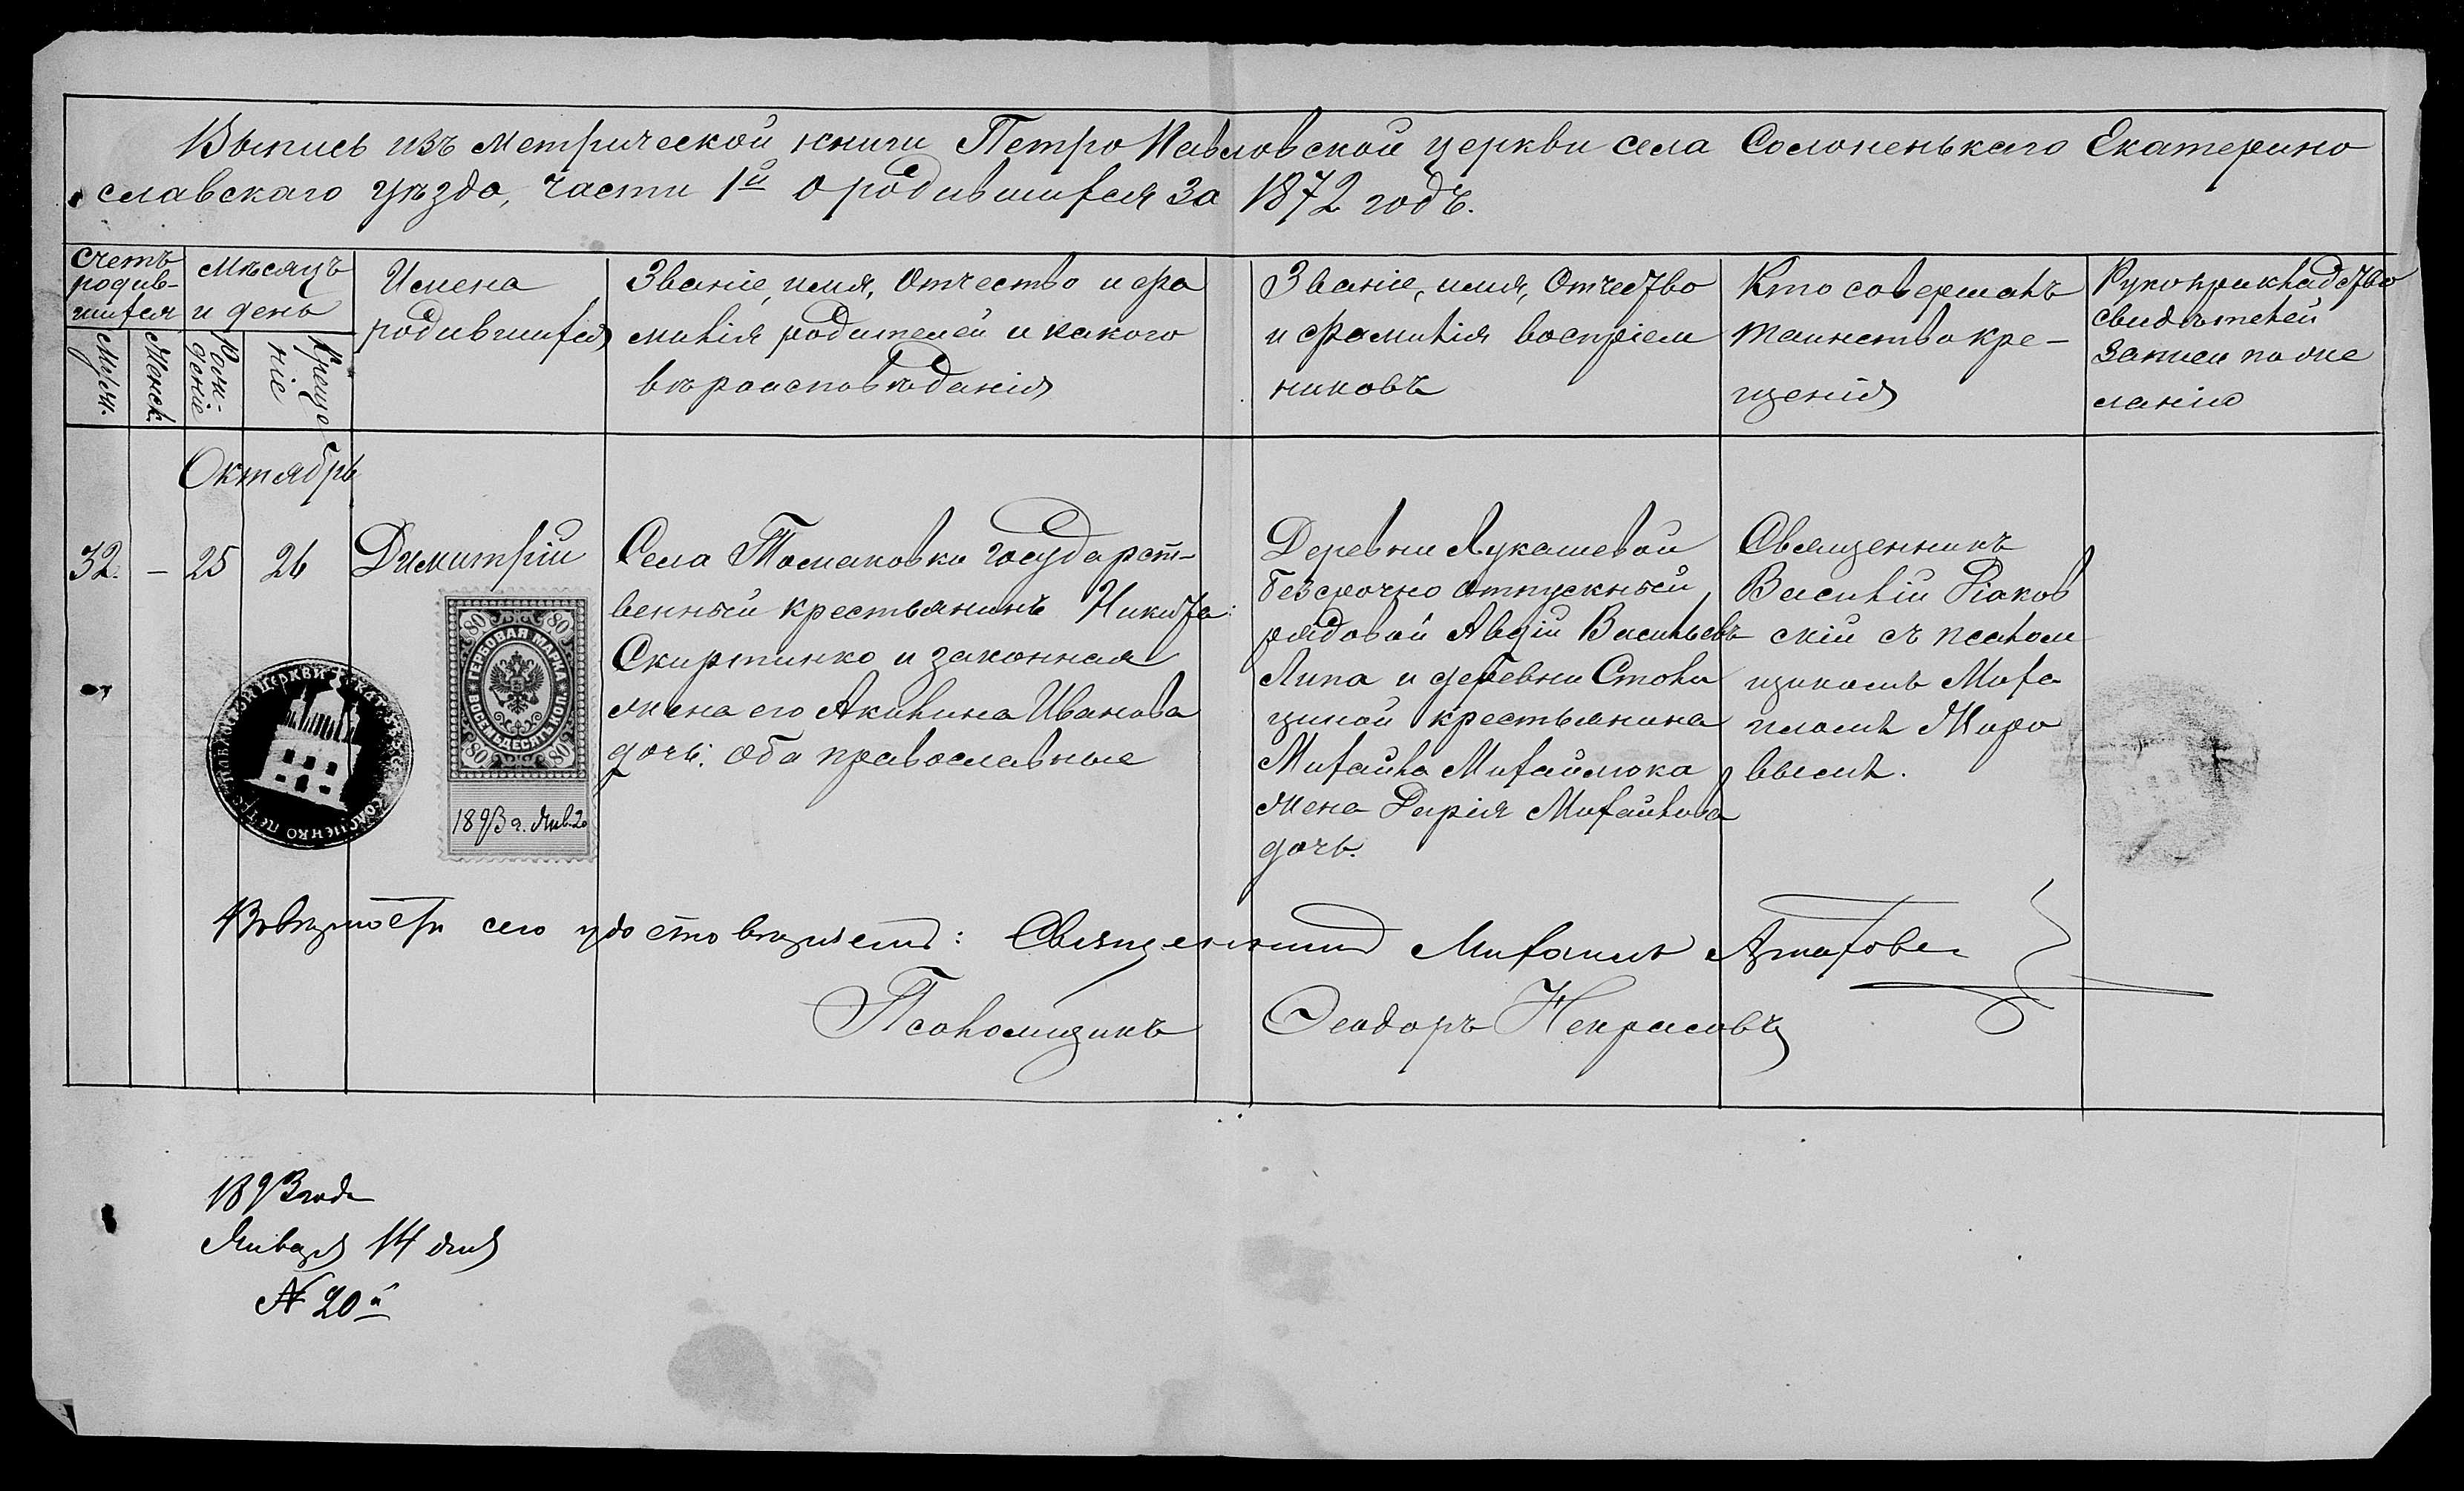 Выпись изъ метрической книги Петро Павловской церкви села Солоненькаго Екатерино
славскаго уѣзда, части 1й о родившихся за 1872 годъ.
Счетъ
родив-
шихся
Мужи.
Женск.
Мѣсяцъ
и день
Рож-
деніе
Креще
ніе
Имена
родившихся
Званіе, имя, отчество и фа
милія родителей и какого
вѣроисповѣданія
Званіе, имя, отчество
и фамилія воспріем
никовъ
Кто совершалъ
таинство кре-
щенія
Рукоприкладство
свидѣтелей
записи по же
ланію
Октябрь
32.
-
25
26
Димитрій
Села Томаковки государст-
венный крестьянинъ Никита
Скиртинко и законная
жена его Акилина Иванова
дочь: оба православные
Деревни Лукашевой
безсрочно отпускный
рядовой Авдій Васильевъ
Липа и деревни Столи
циной крестьянина
Михайла Михайлюка
жена Дарія Михайлова
дочь.
Священникъ
Василій Діаков
скій съ псалом
щикомъ Миха
иломъ Жиро
вымъ.
ГЕРБОВАЯ МАРКА
ВОСЕМЬДЕСЯТЪ КОП.
80 80
80 80
1893 г. Янв. 20
Вѣрность сего удостовѣряемъ: Священникъ Михаилъ
Псаломщикъ Ѳеодоръ Некрасовъ
1893 года
Января 14 дня
№ 20й